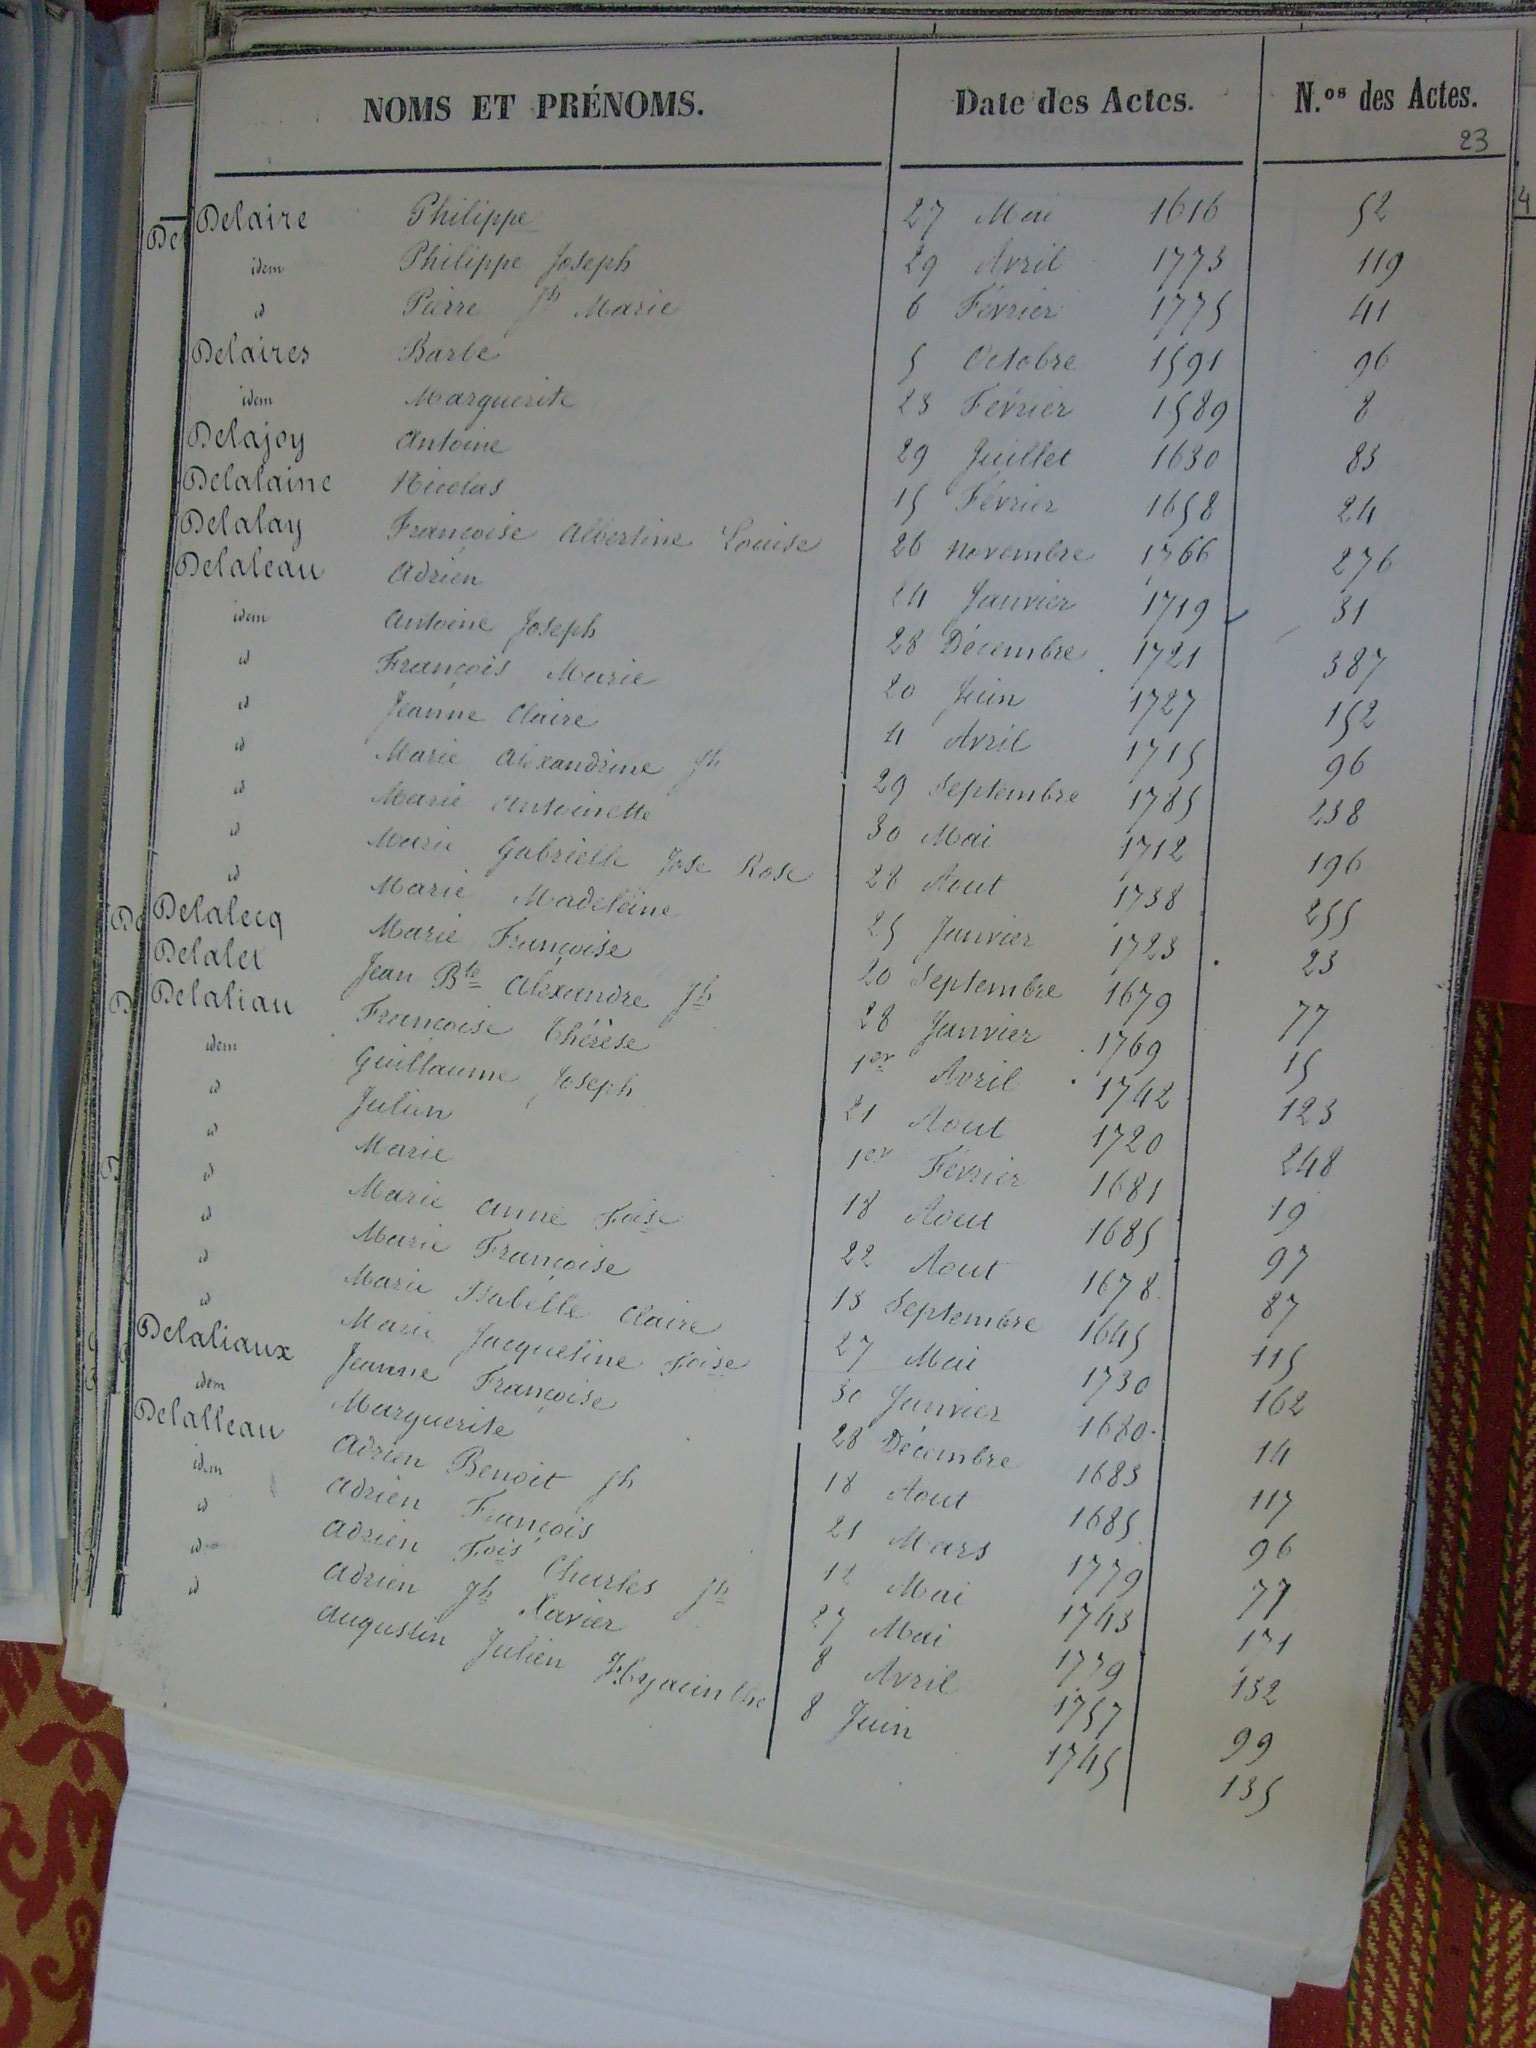 NOMS ET PRÉNOMS. Date des Actes. N.os des Actes.
23
Delaire Philippe 27 Mai 1616 52
idem Philippe Joseph 29 Avril 1773 119
id Pierre Jh Marie 6 Février 1775 41
Delaires Barbe 5 Octobre 1591 96
idem Marguerite 23 Février 1589 8
Delajoy Antoine 29 Juillet 1630 83
Delalaine Nicolas 15 Février 1658 24
Delalay Françoise Albertine Louise 26 novembre 1766 276
Delaleau Adrien 24 Janvier 1719 31
idem Antoine Joseph 28 Décembre 1721 387
id François Marie 20 Juin 1727 152
id Jeanne Claire 4 Avril 1715 96
id Marie Alexandrine Jh 29 Septembre 1785 238
id Marie Antoinette 30 Mai 1712 196
id Marie Gabrielle Jose Rose 28 Aout 1738 255
id Marie Madeleine 25 Janvier 1723 23
Delalecq Marie Françoise 20 Septembre 1679 77
Delalet Jean Bte Alexandre Jh 28 Janvier 1769 15
Delaliau Françoise Thérèse 1er Avril 1742 123
idem Guillaume Joseph 21 Aout 1720 248
id Julien 1er Février 1681 19
id Marie 18 Aout 1685 97
id Marie Anne Foise 22 Aout 1678 87
id Marie Françoise 13 Septembre 1645 115
id Marie Isabelle Claire 27 Mai 1730 162
id Marie Jacqueline Foise 30 Janvier 1680 14
Delaliaux Jeanne Françoise 28 Décembre 1683 117
idem Marguerite 18 Aout 1685 96
Delalleau Adrien Benoit Jh 21 Mars 1779 77
idem Adrien François 12 Mai 1743 171
id Adrien Fois Charles Jh 27 Mai 1779 132
id Adrien Jh Xavier 8 Avril 1757 99
id Augustin Julien Hyacinthe 8 Juin 1745 135